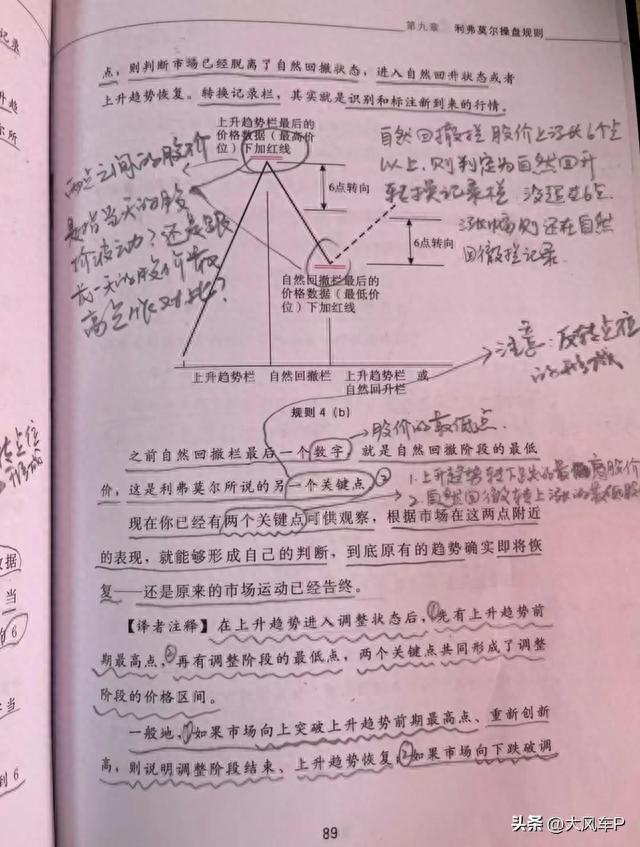 第九章 利弗莫尔操盘规则
点，则判断市场已经脱离了自然回撤状态，进入自然回升状态或者
上升趋势恢复。转换记录栏，其实就是识别和标注新到来的行情。
上升趋势栏最后的
价格数据（最高价
位）下加红线
自然回撤栏 股价上涨大6个点
以上，则判定为自然回升
转换记录栏 没超过6点
涨幅则还在自然
回撤栏记录
两点之间的股价
是指当天的股
价波动？还是跟
前一天的股价最
高点作对比？
6点转向
6点转向
自然回撤栏最后的
价格数据（最低价
位）下加红线
注意：反转点位
的形成
上升趋势栏
自然回撤栏
上升趋势栏 或
自然回升栏
规则 4 (b)
股价的最低点.
之前自然回撤栏最后一个数字，就是自然回撤阶段的最低
价，这是利弗莫尔所说的另一个关键点。
1.上升趋势转下跌的最高股价
2.自然回撤转上涨的最低股
现在你已经有两个关键点可供观察，根据市场在这两点附近
的表现，就能够形成自己的判断，到底原有的趋势确实即将恢
复——还是原来的市场运动已经告终。
【译者注释】在上升趋势进入调整状态后，①先有上升趋势前
期最高点，②再有调整阶段的最低点，两个关键点共同形成了调整
阶段的价格区间。
一般地，①如果市场向上突破上升趋势前期最高点、重新创新
高，则说明调整阶段结束、上升趋势恢复，②如果市场向下跌破调
89
头条 @大风车P